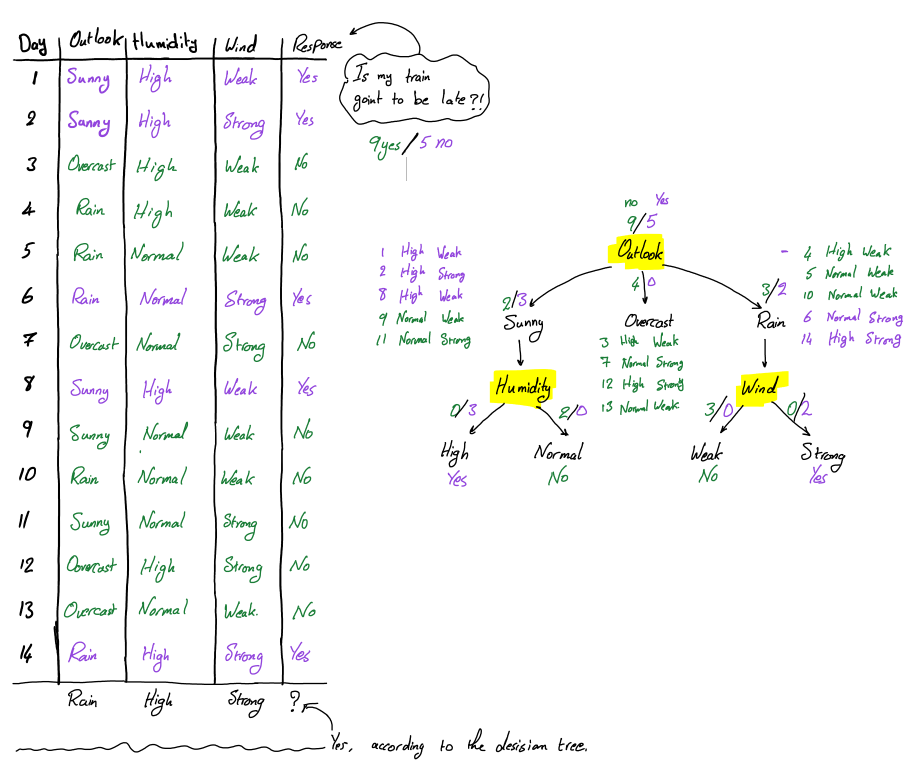 Day Outlook Humidity Wind Response
1 Sunny High Weak Yes
2 Sunny High Strong Yes
3 Overcast High Weak No
4 Rain High Weak No
5 Rain Normal Weak No
6 Rain Normal Strong Yes
7 Overcast Normal Strong No
8 Sunny High Weak Yes
9 Sunny Normal Weak No
10 Rain Normal Weak No
11 Sunny Normal Strong No
12 Oovercast High Strong No
13 Overcast Normal Weak. No
14 Rain High Strong Yes
Rain High Strong ?
Yes, according to the desisian tree.
Is my train
goint to be late?!
9yes/5 no
no Yes
9/5
Outlook
4 0
2/3
Sunny
Overcast
3/2
Rain
1 High Weak
2 High Strong
8 High Weak
9 Normal Weak
11 Normal Strong
3 High Weak
7 Normal Strong
12 High Strong
13 Normal Weak
- 4 High Weak
5 Normal Weak
10 Normal Weak
6 Normal Strong
14 High Strong
Humidity
0/3 2/0
High Normal
Yes No
Wind
3/0 0/2
Weak Strong
No Yes